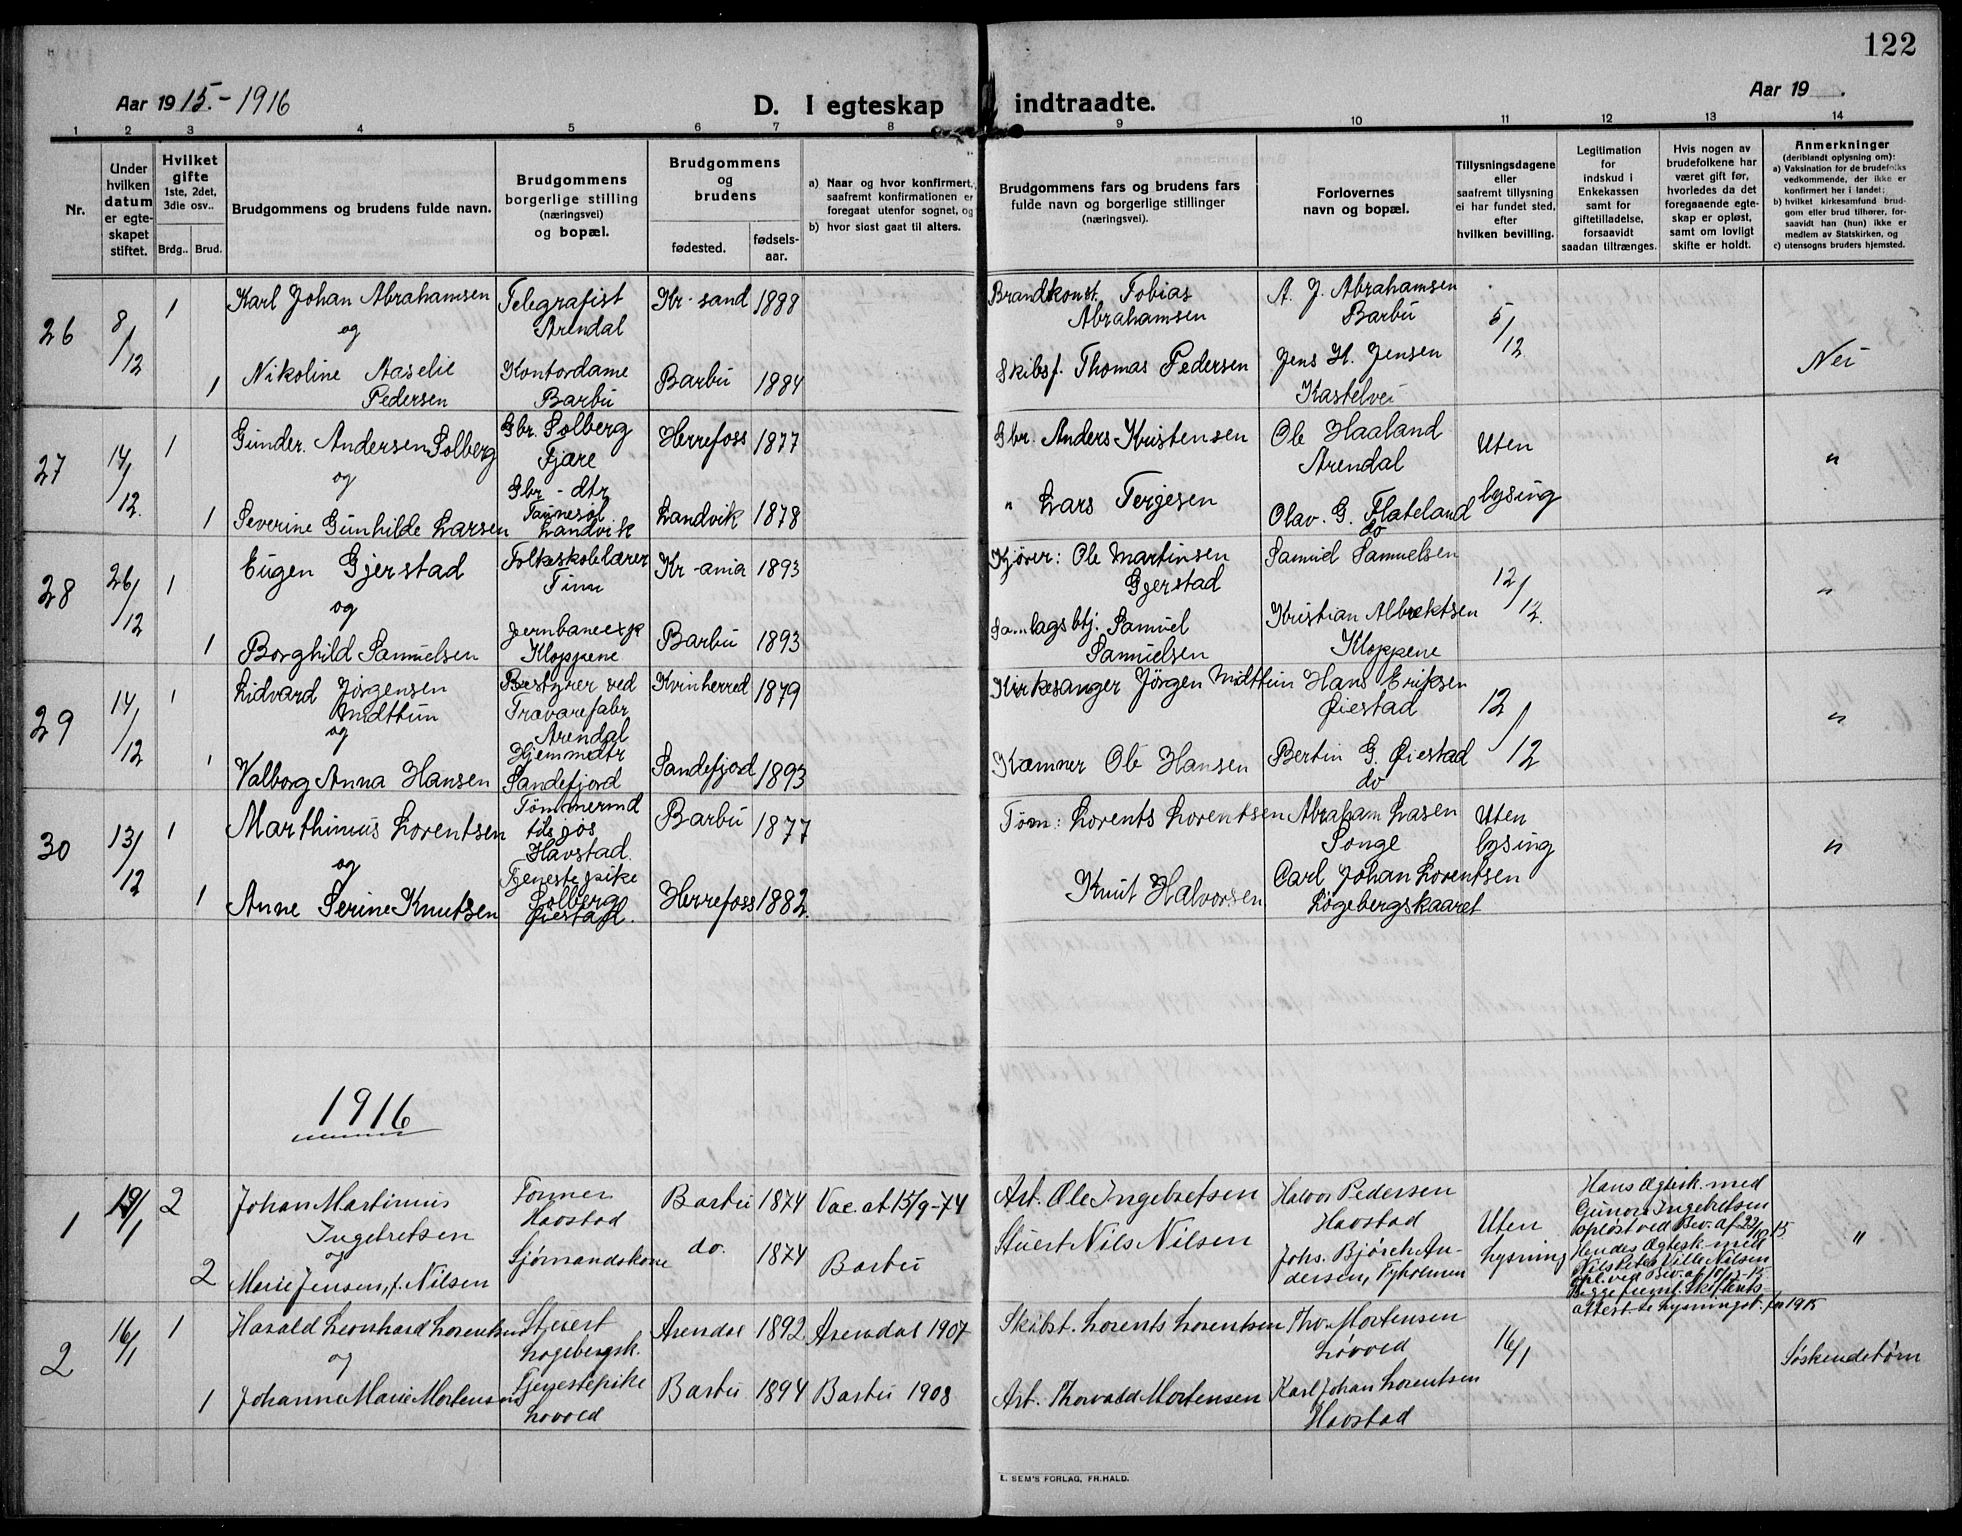 122
Aar 1915.-1916
D. I egteskap indtraadte.
Aar 19 .
1 2 3 4 5 6 7 8 9 10 11 12 13 14
Nr.
Under hvilken datum er egte-skapet stiftet.
Hvilket gifte
1ste, 2det, 3die osv..
Brdg.. Brud.
Brudgommens og brudens fulde navn.
Brudgommens borgerlige stilling
(næringsvei)
og bopæl.
Brudgommens og brudens
fødested.
fødsels-aar.
a) Naar og hvor konfirmert, saafremt konfirmationen er foregaat utenfor sognet, og
b) hvor sidst gaat til alters.
Brudgommens fars og brudens fars fulde navn og borgerlige stillinger
(næringsvei).
Forlovernes navn og bopæl.
Tillysningsdagene eller saafremt tillysning ei har fundet sted, efter hvilken bevilling.
Legitimation for indskud i Enkekassen samt for giftetilladelse, forsaavidt saadan tiltrænges.
Hvis nogen av brudefolkene har været gift før, hvorledes da det foregaaende egte-skap er opløst, samt om lovligt skifte er holdt.
Anmerkninger
(deriblandt oplysning om):
a) Vaksination for de brudefolks vedkommende, der ikke er konfirmert her i landet;
b) hvilket kirkesamfund brud-gom eller brud tilhører, for-saavidt han (hun) ikke er medlem av Statskirken, og
c) utensogns bruders hjemsted.
26 8/12 1 Karl Johan Abrahamsen Telegrafist Arendal Kr-sand 1888 Brandkonst. Tobias Abrahamsen A. J. Abrahamsen Barbu 5/12 Nei
og
1 Nikoline Aaselie Pedersen Kontordame Barbu Barbu 1884 Skibsf. Thomas Pedersen Jens H. Jensen Kastelvei
27 14/12. 1 Gunder. Andersen Solberg Gbr. Solberg Fjære Herrefoss 1877 Gbr. Anders Kristensen Ole Haaland Arendal Uten lysing "
og
1 Severine Gunhilde Larsen Gbr - dtr Landvik Landvik 1878 " Lars Terjesen Olav. G. Flateland do
28 26/12 1 Eugen Gjerstad Folkeskolelærer Tinn Kr-ania 1893 Kjører: Ole Martinsen Gjerstad Samuel Samuelsen 12/12. "
og
1 Borghild Samuelsen Jernbaneexp Kloppene Barbu 1893 Samuel Samuelsen Kristian Albrektsen Kloppene
29 14/12 1 Lidvard Jørgensen Midttun Bestyrer ved Trævarefabr Arendal Kvinherred 1879 Kirkesanger Jörgen Midttun Hans Eriksen Øiestad 12/12 "
og
1 Valborg Anna Hansen Hjemmedtr Sandefjord Sandefjord 1893 Kæmner Ole Hansen Bertin G. Øiestad do
30 13/12 1 Marthinius Lorentsen Tømmermd Havstad. Barbu 1877 Tøm: Lorents Lorentsen Abraham Lasen Songe Uten lysing "
og
1 Anne Serine Knutsen Tjenestepike Solberg Øiestad. Herrefoss 1882 Knut Halvorsen Carl Johan Lorentsen Løgebergskaaret
1916
1 2 Johan Martinius Ingebretsen Tømmer Havstad Barbu 1874 Vac. at 15/9-74 Arb. Ole Ingebretsen Halvor Pedersen Havstad Uten Lysning "
og
2 Marie Jensen, f. Nilsen Sjømandskone do. 1874 Barbu Stuert Nils Nilsen Johs. Bjørch Andersen, Tyholmen
Hans Ægtesk. med Gunora Ingebretsen opløst ved Bev. af 22/10 15
Hendes Ægtesk. med
2 16/1 1 Harald Leonhard Lorentsen Stuert Løgebergsk. Arendal 1892 Arendal 1907 Skibst. Lorents Lorentsen Thor Mortensen Løvold 16/1 Søskendebørn
og
1 Johanne Marie Mortensen Tjenestepike Løvold Barbu 1894 Barbu 1908 Arb. Thorvald Mortensen Karl Johan Lorentsen Havstad
E. SEM'S FORLAG, FR.HALD.